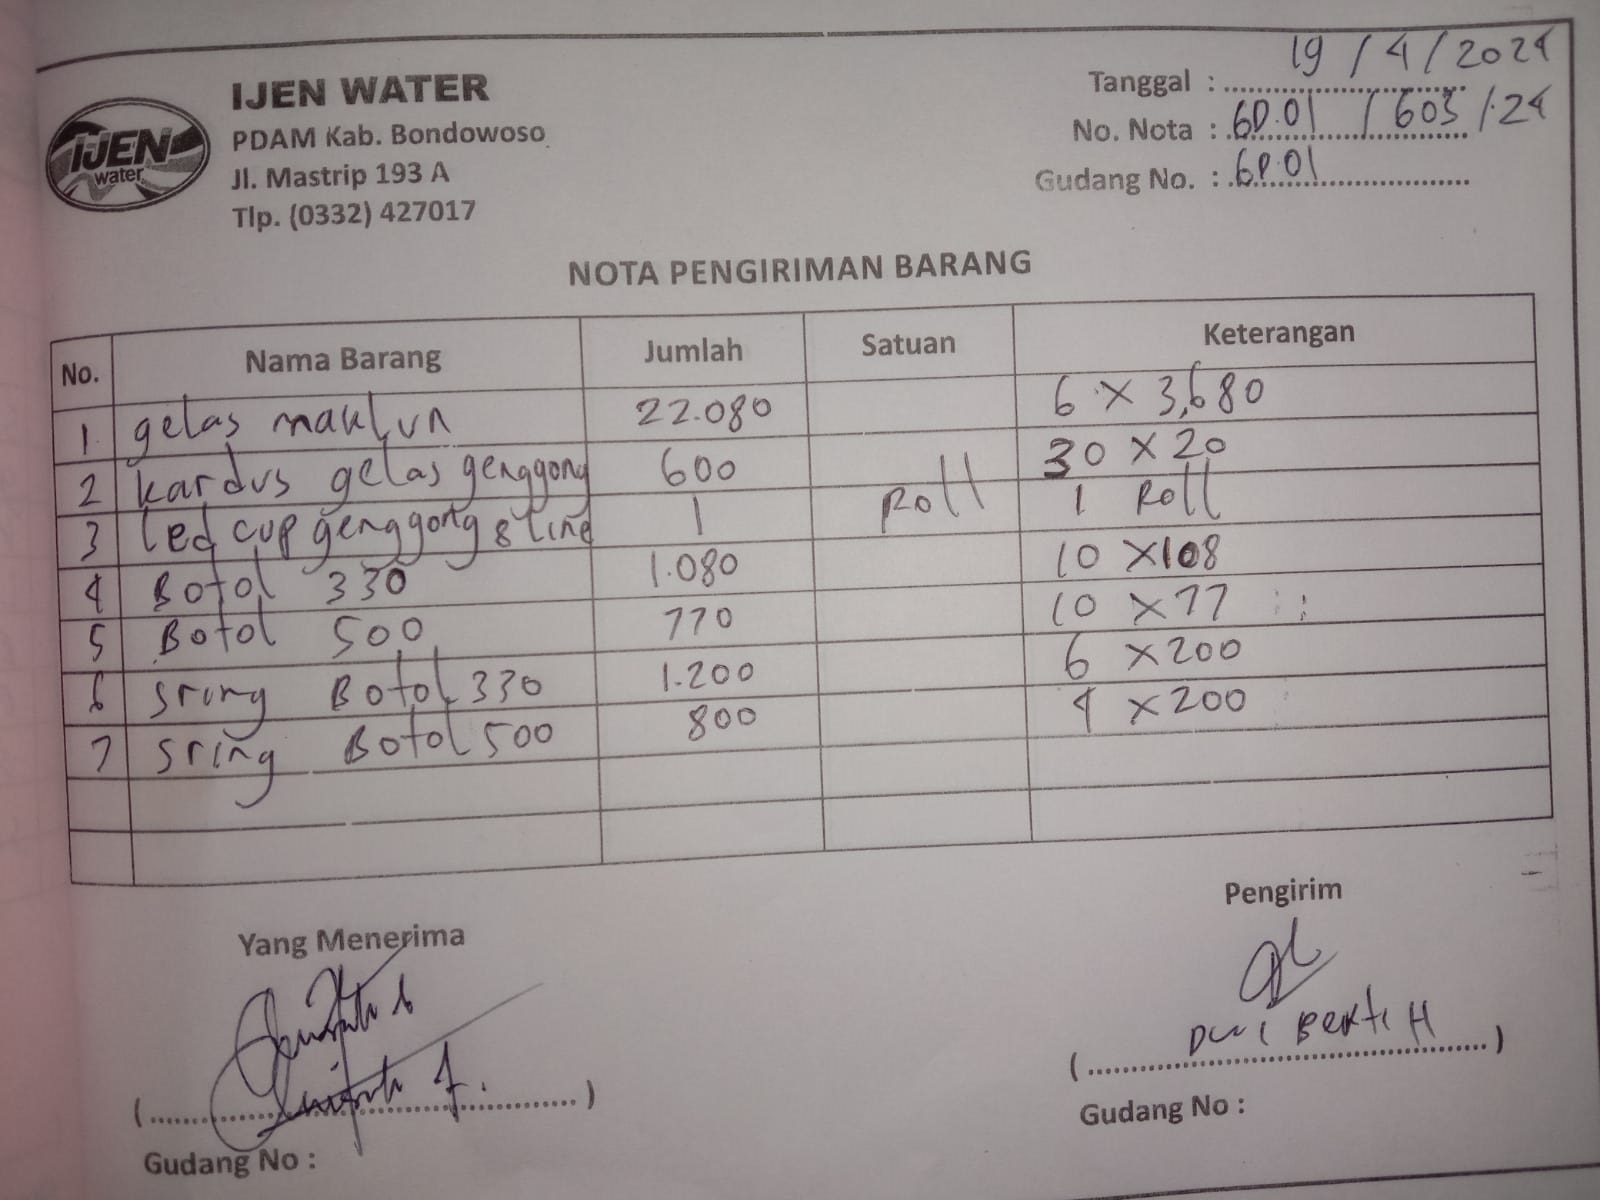 IJEN WATER
PDAM Kab. Bondowoso
Jl. Mastrip 193 A
Tlp. (0332) 427017
IJEN
water
Tanggal : 19 / 4 / 2024
No. Nota : 6D.01 / 603 / .24
Gudang No. : 6P.01
NOTA PENGIRIMAN BARANG
No. Nama Barang Jumlah Satuan Keterangan
1. gelas maklun 22.080 6 x 3,680
2 kardus gelas genggong 600 30 x 20
3 led cup genggong 8 line 1 Roll 1 Roll
4 Botol 330 1.080 10 x 108
5 Botol 500 770 10 x 77
6 sring Botol 330 1.200 6 x 200
7 sring Botol 500 800 4 x 200
Yang Menerima
Pengirim
Dwi Bekti H
(........................)
(........................)
Gudang No :
Gudang No :